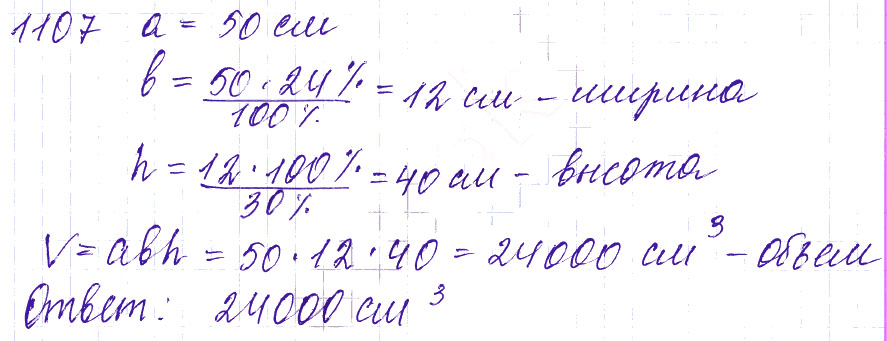 1107 a = 50 см
b = 50 · 24% / 100% = 12 см – ширина
h = 12 · 100% / 30% = 40 см – высота
V = abh = 50 · 12 · 40 = 24000 см³ – объем
Ответ: 24000 см³